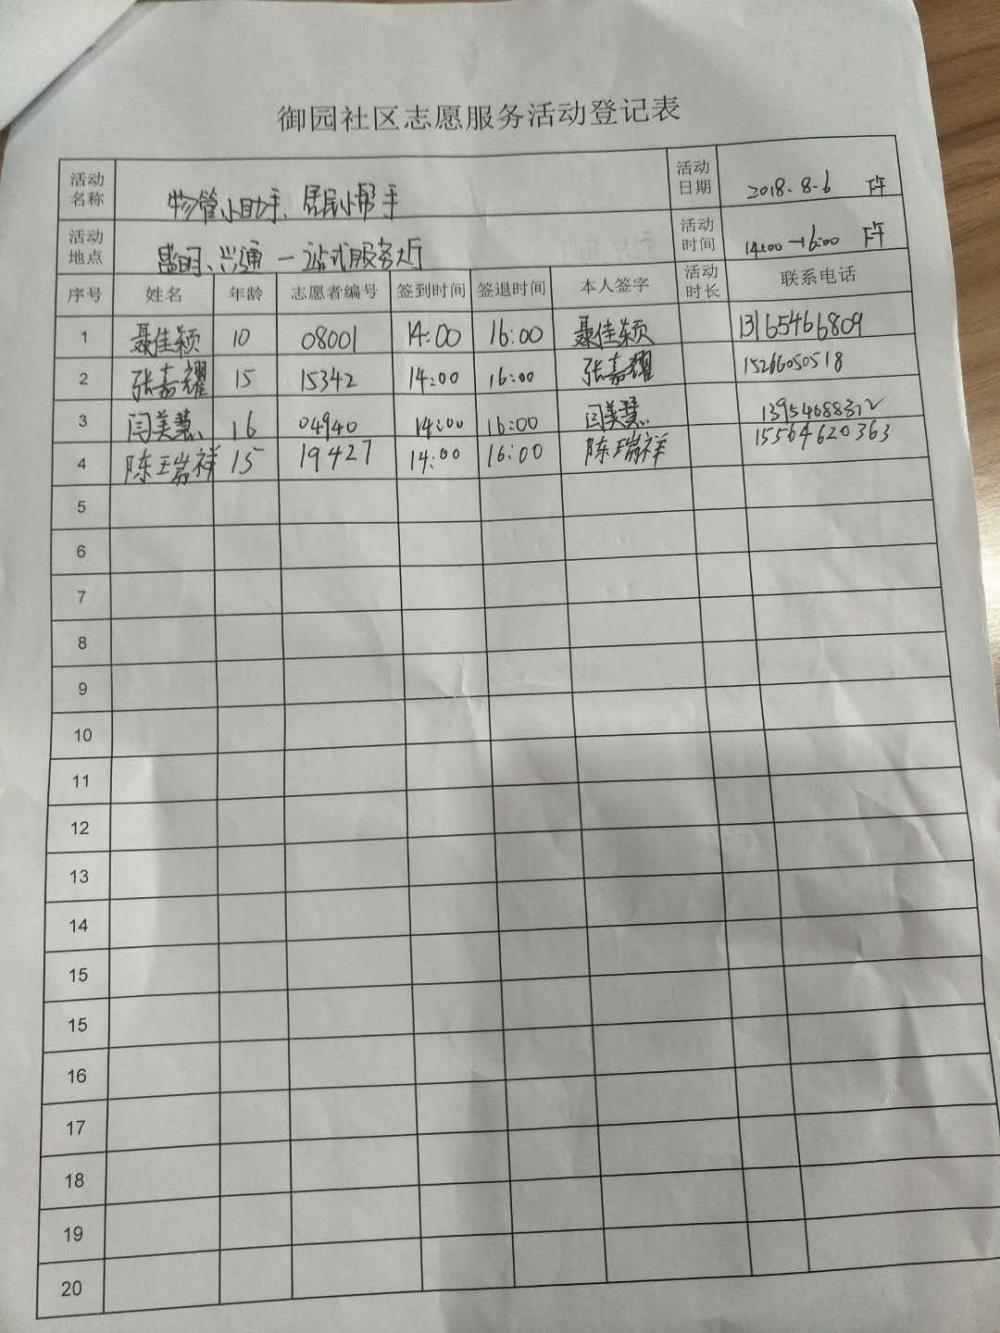 御园社区志愿服务活动登记表
活动名称 物管小助手、居民小帮手 活动日期 2018.8.6 下午
活动地点 盛明、兴通一站式服务大厅 活动时间 14:00—16:00 下午
序号 姓名 年龄 志愿者编号 签到时间 签退时间 本人签字 活动时长 联系电话
1 聂佳颖 10 08001 14:00 16:00 聂佳颖 13165466809
2 张嘉耀 15 15342 14:00 16:00 张嘉耀 15266050518
3 闫美慧 16 04940 14:00 16:00 闫美慧 13954688312
4 陈瑞祥 15 19427 14:00 16:00 陈瑞祥 15564620363
5
6
7
8
9
10
11
12
13
14
15
15
16
17
18
19
20